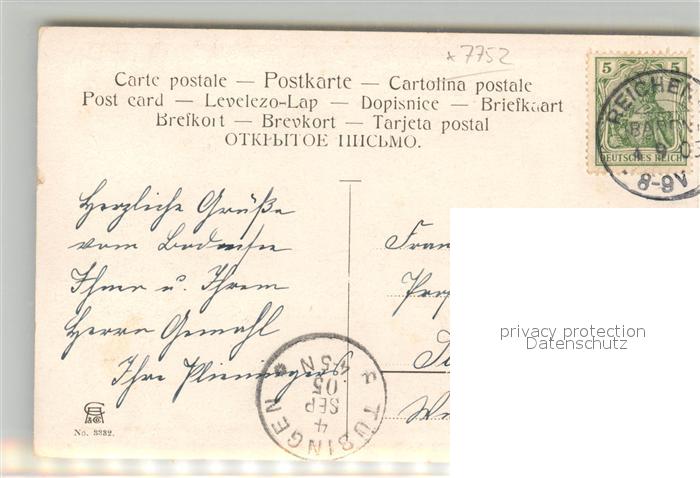 * 7752
Carte postale — Postkarte — Cartolina postale
Post card — Levelezo-Lap — Dopisnice — Briefkaart
Brefkort — Brevkort — Tarjeta postal
ОТКРЫТОЕ ПИСЬМО.
5 5
DEUTSCHES REICH
REICHEN
(BADEN
4 9 05
8-9V
Herzliche Grüße
vom Bodensee
Ihnen u. Ihrem
Herrn Gemahl
Ihre Plieningers
Frau
TÜBINGEN
4
SEP
05
No. 3332.
privacy protection
Datenschutz